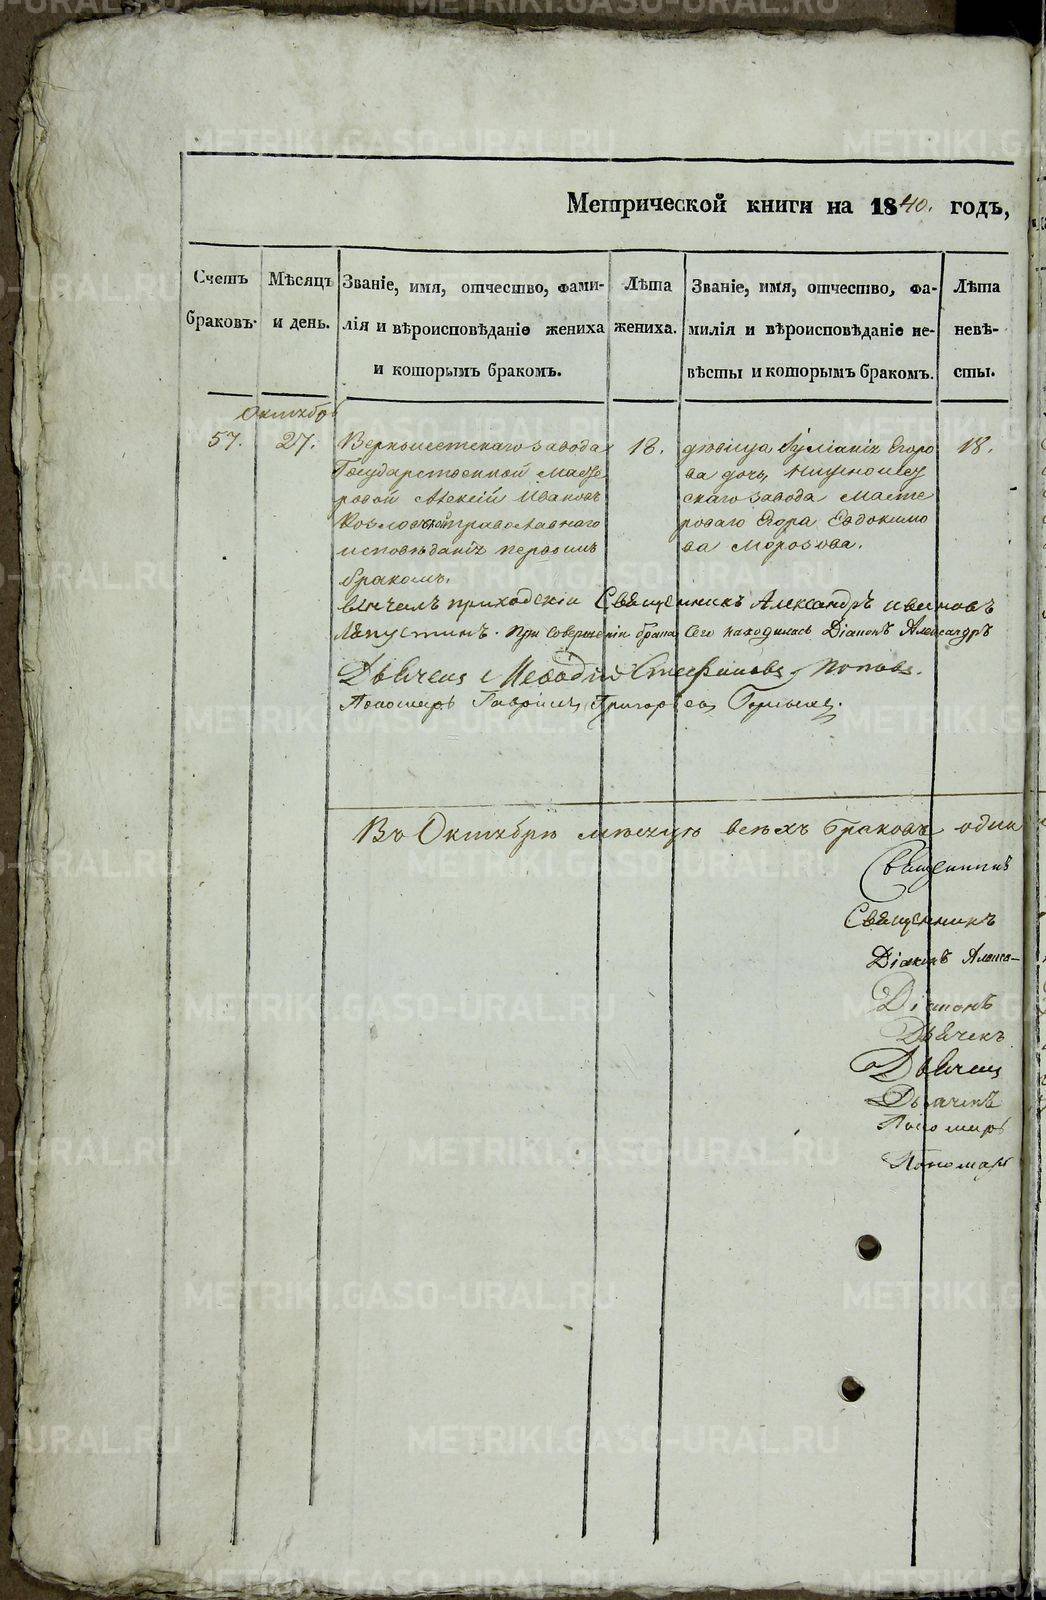 Метрической книги на 1840. годъ,
Счетъ браковъ.
Мѣсяцъ и день.
Званіе, имя, отчество, фами-
лія и вѣроисповѣданіе жениха
и которымъ бракомъ.
Лѣта
жениха.
Званіе, имя, отчество, фа-
милія и вѣроисповѣданіе не-
вѣсты и которымъ бракомъ.
Лѣта
невѣ-
сты.
Октября
57.
27.
Верхъисетскаго завода
Государственной Масте
ровой Алексій Ивановъ
Козловъ православнаго
исповѣданія первымъ
бракомъ.
18.
дѣвица Іуліанія Егоро
ва дочь,
скаго завода масте
роваго Егора Евдокимо
ва Морозова.
18.
вѣнчалъ приходскіи Священникъ Александръ Ивановъ
Лапустинъ. При совершеніи брака Сего находилась Діаконъ Александръ
Дьячекъ Меѳодій Стефановъ Поповъ.
Пономарь Гавріилъ Григорьевъ
Въ Октябрѣ мѣсяцѣ всѣхъ браковъ один
Священникъ
Священникъ
Діаконъ Алекса-
Діаконъ
Дьячекъ
Дьячекъ
Дьячекъ
Пономарь
Пономарь
METRIKI.GASO-URAL.RU